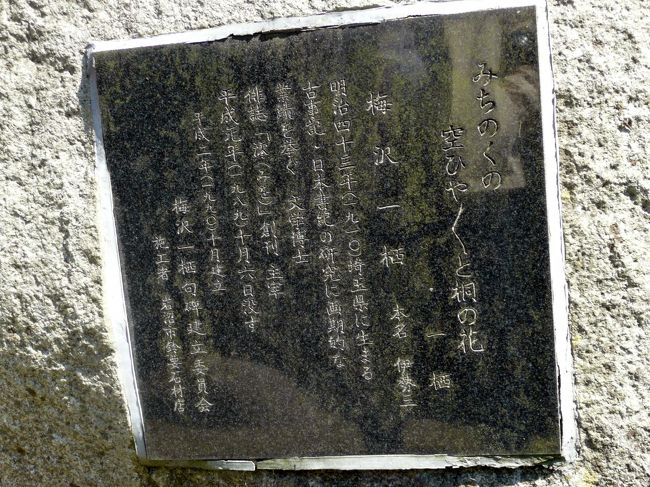 みちのくの
空ひやゝゝと桐の花
一栖
梅沢一栖 本名 伊勢三
明治四十三年(一九一〇)埼玉県に生まる
古事記・日本書紀の研究に画期的な
業績を築く 文学博士
俳誌「」創刊・主宰
平成元年(一九八九)十月六日没す
平成二年(一九九〇)十月建立
梅沢一栖句碑建立委員会
施工者 石材店